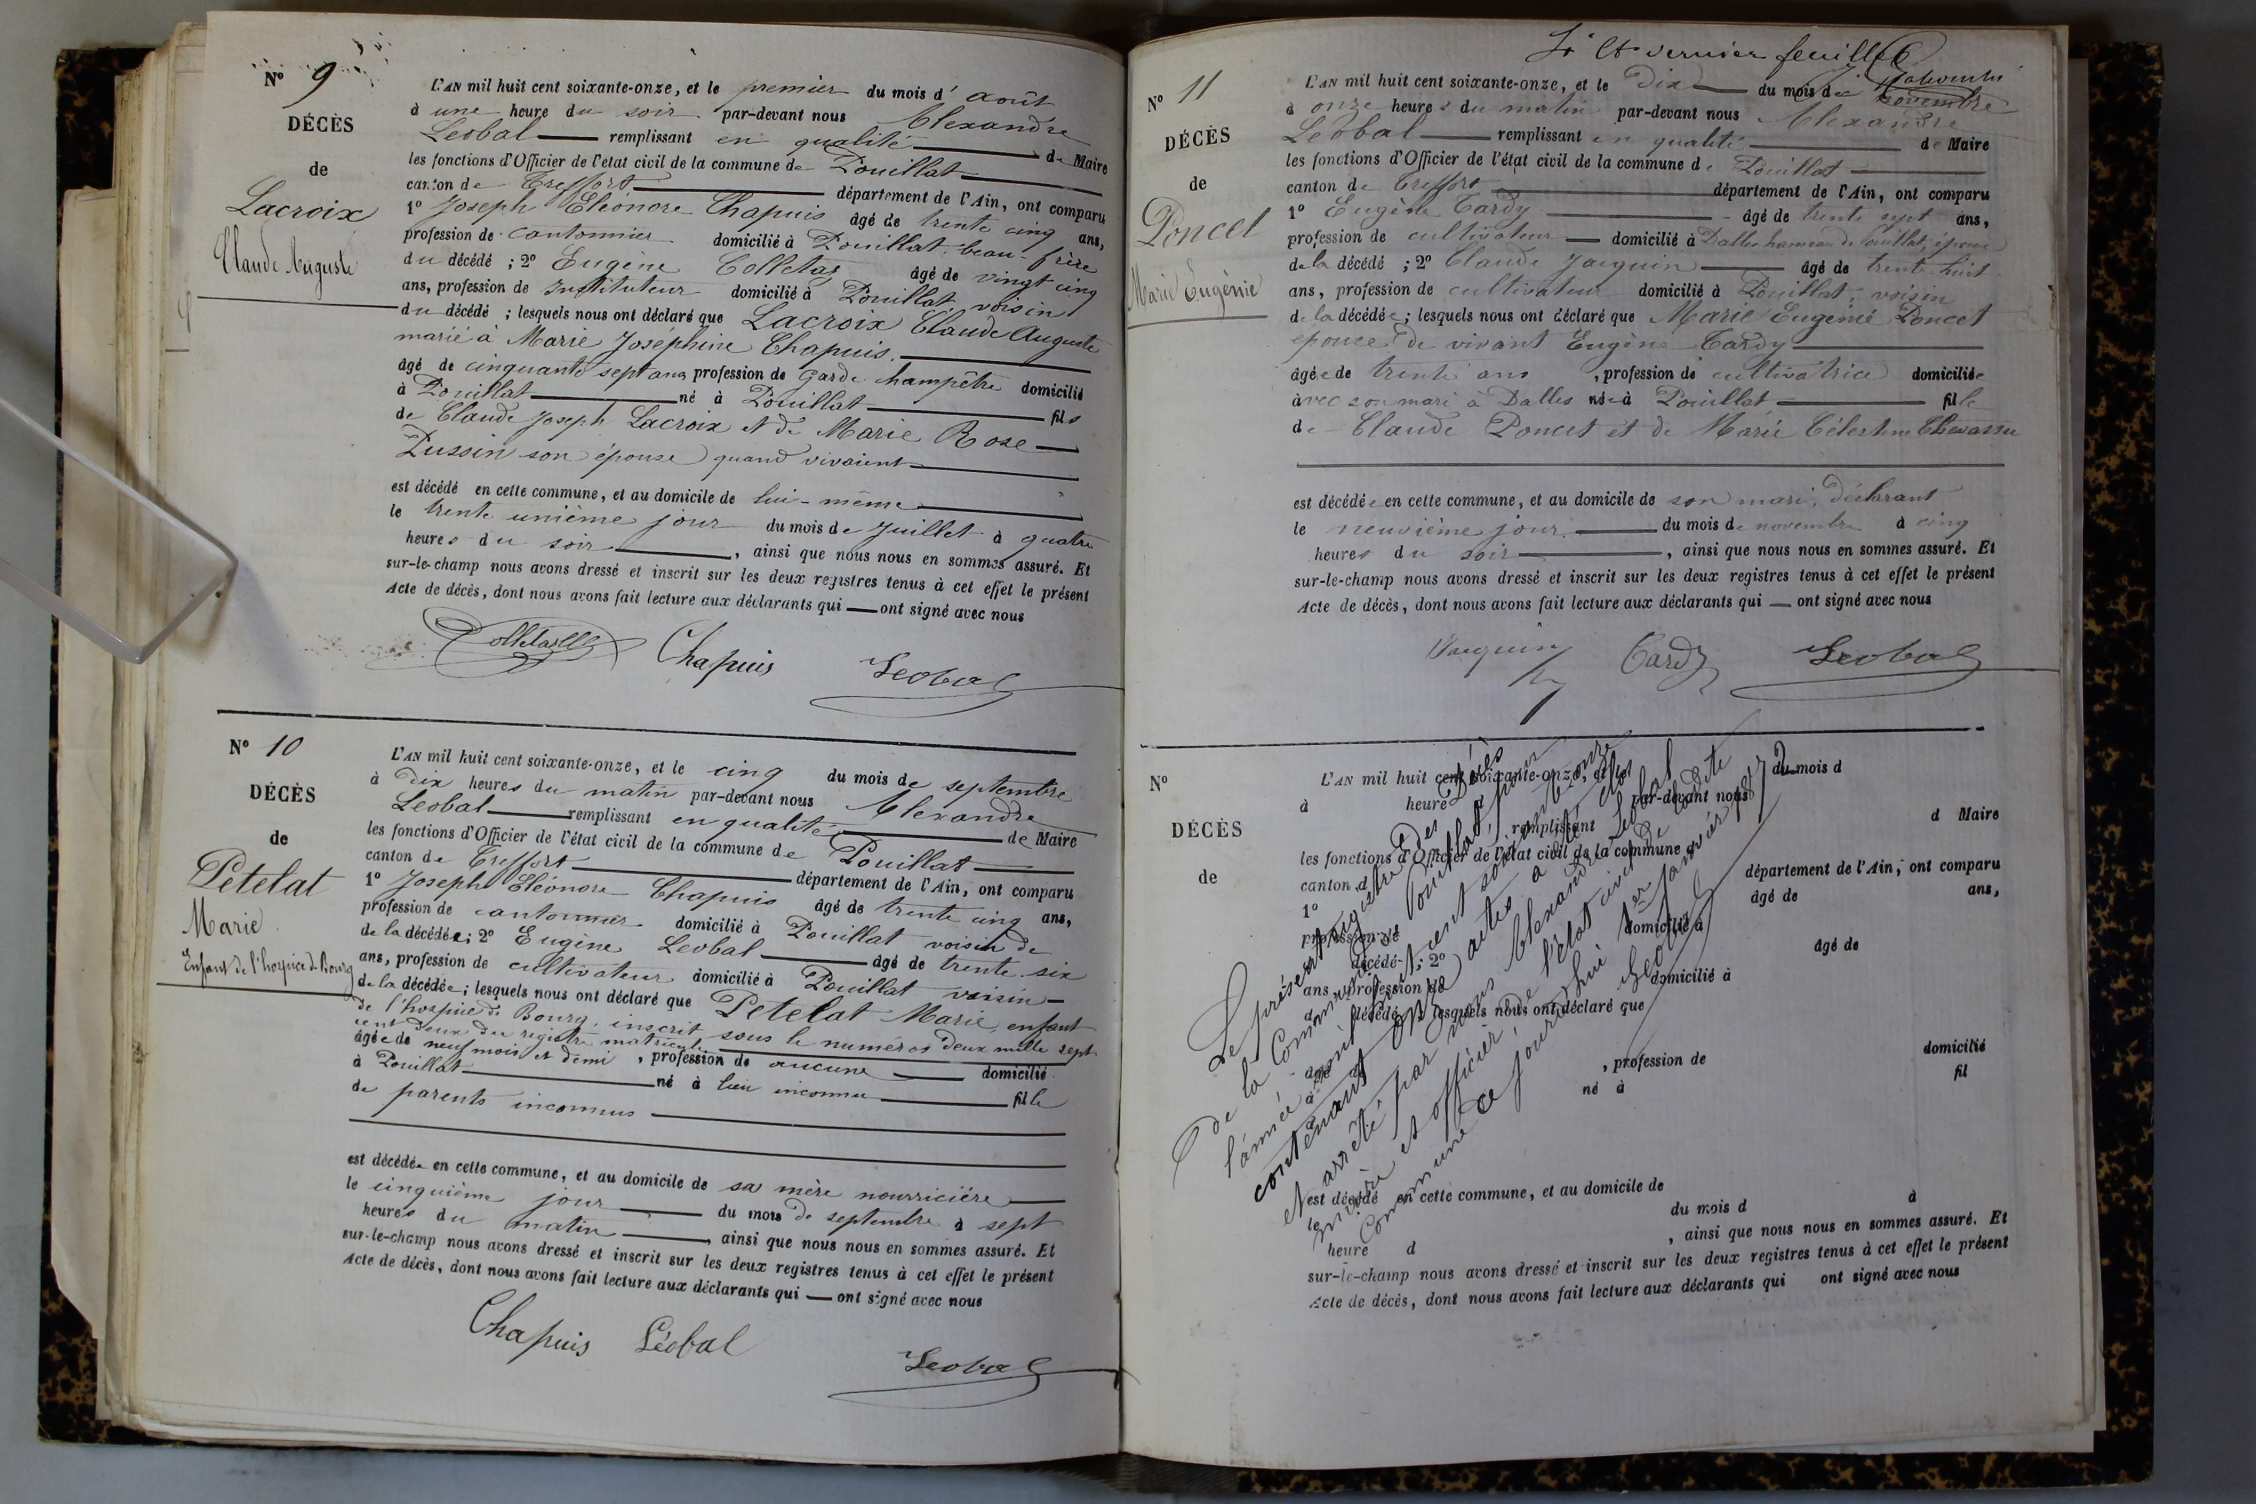 N° 9
DÉCÈS
de
Lacroix
Claude Auguste
L'AN mil huit cent soixante-onze, et le premier du mois d'août
à une heure du soir par-devant nous Alexandre
Léobal remplissant en qualité de Maire
les fonctions d'Officier de l'état civil de la commune de Pouillat
canton de Treffort département de l'Ain, ont comparu
1° Joseph Eléonore Chapuis âgé de trente cinq ans,
profession de cantonnier domicilié à Pouillat beau-frère
du décédé ; 2° Eugène Colletaz âgé de vingt cinq
ans, profession de instituteur domicilié à Pouillat, voisin
du décédé ; lesquels nous ont déclaré que Lacroix Claude Auguste
marié à Marie Joséphine Chapuis.
âgé de cinquante sept ans profession de garde champêtre domicilié
à Pouillat né à Pouillat fils
de Claude Joseph Lacroix et de Marie Rose
Pussin son épouse quand vivaient
est décédé en cette commune, et au domicile de lui-même
le trente unième jour du mois de Juillet à quatre
heures du soir, ainsi que nous nous en sommes assuré. Et
sur-le-champ nous avons dressé et inscrit sur les deux registres tenus à cet effet le présent
Acte de décès, dont nous avons fait lecture aux déclarants qui ont signé avec nous
Chapuis Léobal
N° 10
DÉCÈS
de
Petelat
Marie
Enfant de l'hospice de Bourg
L'AN mil huit cent soixante-onze, et le cinq du mois de septembre
à dix heures du matin par-devant nous Alexandre
Léobal remplissant en qualité de Maire
les fonctions d'Officier de l'état civil de la commune de Pouillat
canton de Treffort département de l'Ain, ont comparu
1° Joseph Eléonore Chapuis âgé de trente cinq ans,
profession de cantonnier domicilié à Pouillat voisin de
de la décédée ; 2° Eugène Léobal âgé de trente six
ans, profession de cultivateur domicilié à Pouillat voisin
de la décédée ; lesquels nous ont déclaré que Petelat Marie, enfant
de l'hospice de Bourg, inscrit sous le numéros deux mille sept
cent deux du registre matricule
âgée de neuf mois et demi, profession de aucune domicilié
à Pouillat né à lieu inconnu fille
de parents inconnus
est décédée en cette commune, et au domicile de sa mère nourricière
le cinquième jour du mois de septembre à sept
heures du matin, ainsi que nous nous en sommes assuré. Et
sur-le-champ nous avons dressé et inscrit sur les deux registres tenus à cet effet le présent
Acte de décès, dont nous avons fait lecture aux déclarants qui ont signé avec nous
Chapuis Léobal Léobal
et dernier feuillet
N° 11
DÉCÈS
de
Poncet
Marie Eugénie
L'AN mil huit cent soixante-onze, et le Dix du mois de novembre
à onze heures du matin par-devant nous Alexandre
Léobal remplissant en qualité de Maire
les fonctions d'Officier de l'état civil de la commune de Pouillat
canton de Treffort département de l'Ain, ont comparu
1° Eugène Tardy âgé de trente sept ans,
profession de cultivateur domicilié à Dalles hameau de Pouillat, époux
de la décédé ; 2° Claude Jacquin âgé de trente huit
ans, profession de cultivateur domicilié à Pouillat, voisin
de la décédée ; lesquels nous ont déclaré que Marie Eugénie Poncet
épouse de vivant Eugène Tardy
âgée de trente ans, profession de cultivatrice domiciliée
avec son mari à Dalles née à Pouillat fille
de Claude Poncet et de Marie Célestine
est décédée en cette commune, et au domicile de son mari, déclarant
le neuvième jour du mois de novembre à cinq
heures du soir, ainsi que nous nous en sommes assuré. Et
sur-le-champ nous avons dressé et inscrit sur les deux registres tenus à cet effet le présent
Acte de décès, dont nous avons fait lecture aux déclarants qui ont signé avec nous
Jacquin Tardy Léobal
N°
DÉCÈS
de
L'AN mil huit cent soixante-onze, et le du mois d
à heure d par-devant nous
remplissant d Maire
les fonctions d'Officier de l'état civil de la commune d
canton d département de l'Ain, ont comparu
1° âgé de ans,
profession de domicilié à
décédé ; 2° âgé de
ans, profession de domicilié à
d décédé ; lesquels nous ont déclaré que
âgé de , profession de domicilié
à né à fil
est décédé en cette commune, et au domicile de
le du mois d à
heure d , ainsi que nous nous en sommes assuré. Et
sur-le-champ nous avons dressé et inscrit sur les deux registres tenus à cet effet le présent
Acte de décès, dont nous avons fait lecture aux déclarants qui ont signé avec nous
Le présent registre des Décès
de la Commune de Pouillat, pour
l'année mil huit cent soixante onze
contenant onze actes a été clos
et arrêté par nous Alexandre Léobal
maire et officier de l'état civil de ladite
Commune ce jourd'hui 1er janvier 1872
Léobal